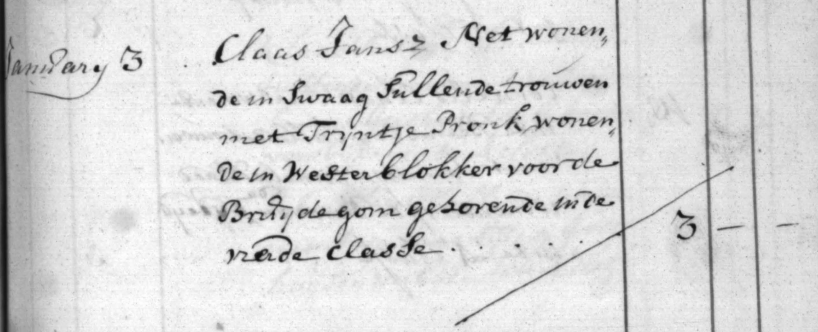 January 3 Claas Jansz Net wonen„
de in Swaag Sullende trouwen
met Trijntje Pronk wonen„
de in Westerblokker voor de
Bruijdegom gehorende in de
vierde Classe . . . . . 3 — —